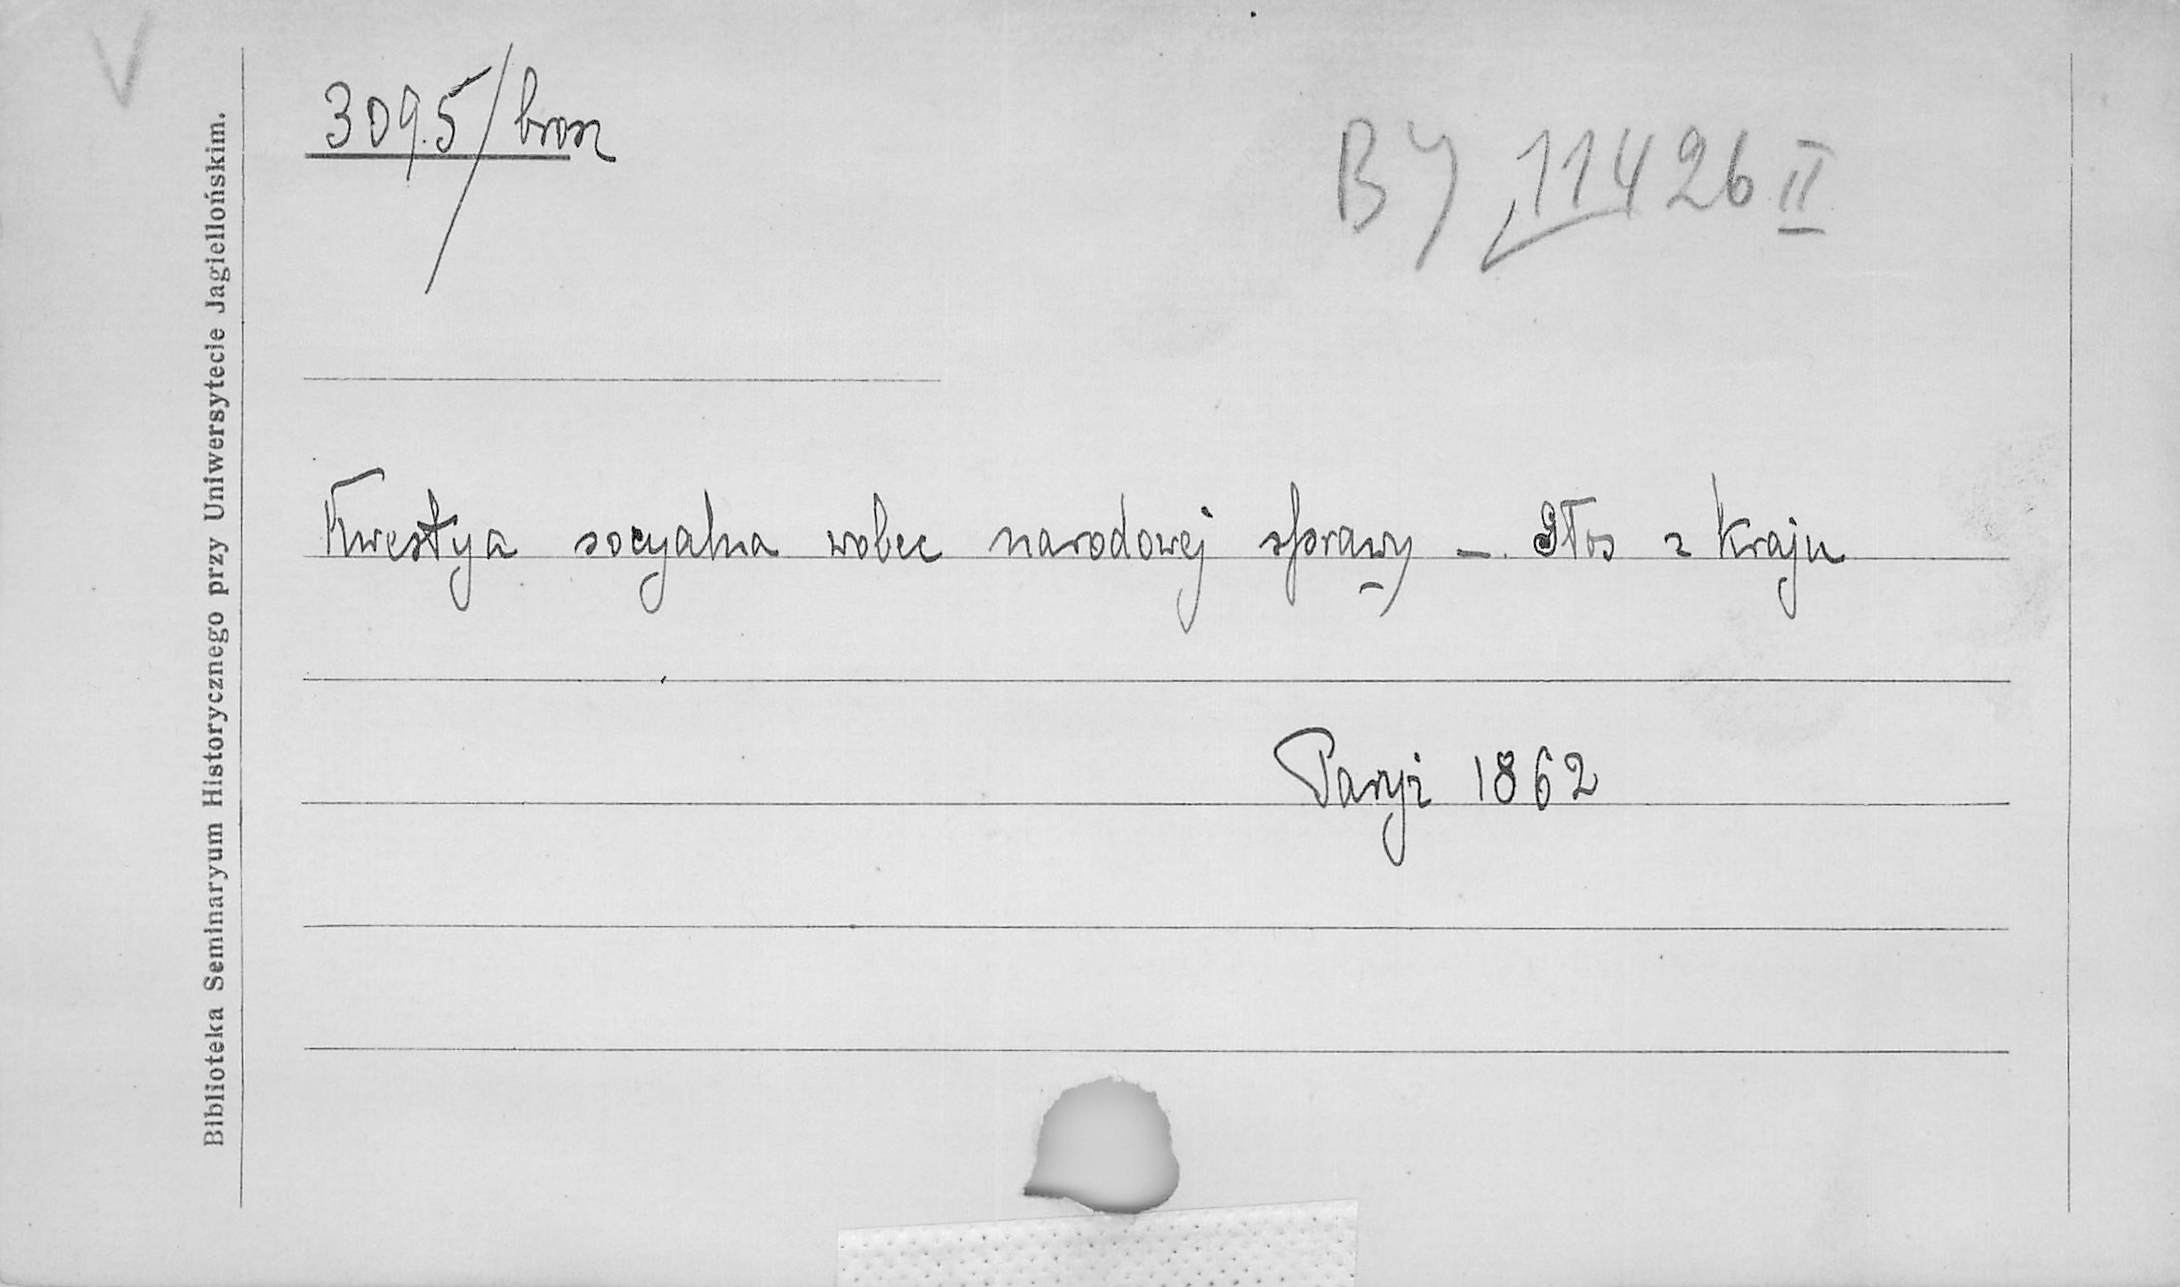 V
3095/brosz
BJ 11426 II
Kwestya socyalna wobec narodowej sprawy – Głos z Kraju
Paryż 1862
Biblioteka Seminaryum Historycznego przy Uniwersytecie Jagiellońskim.